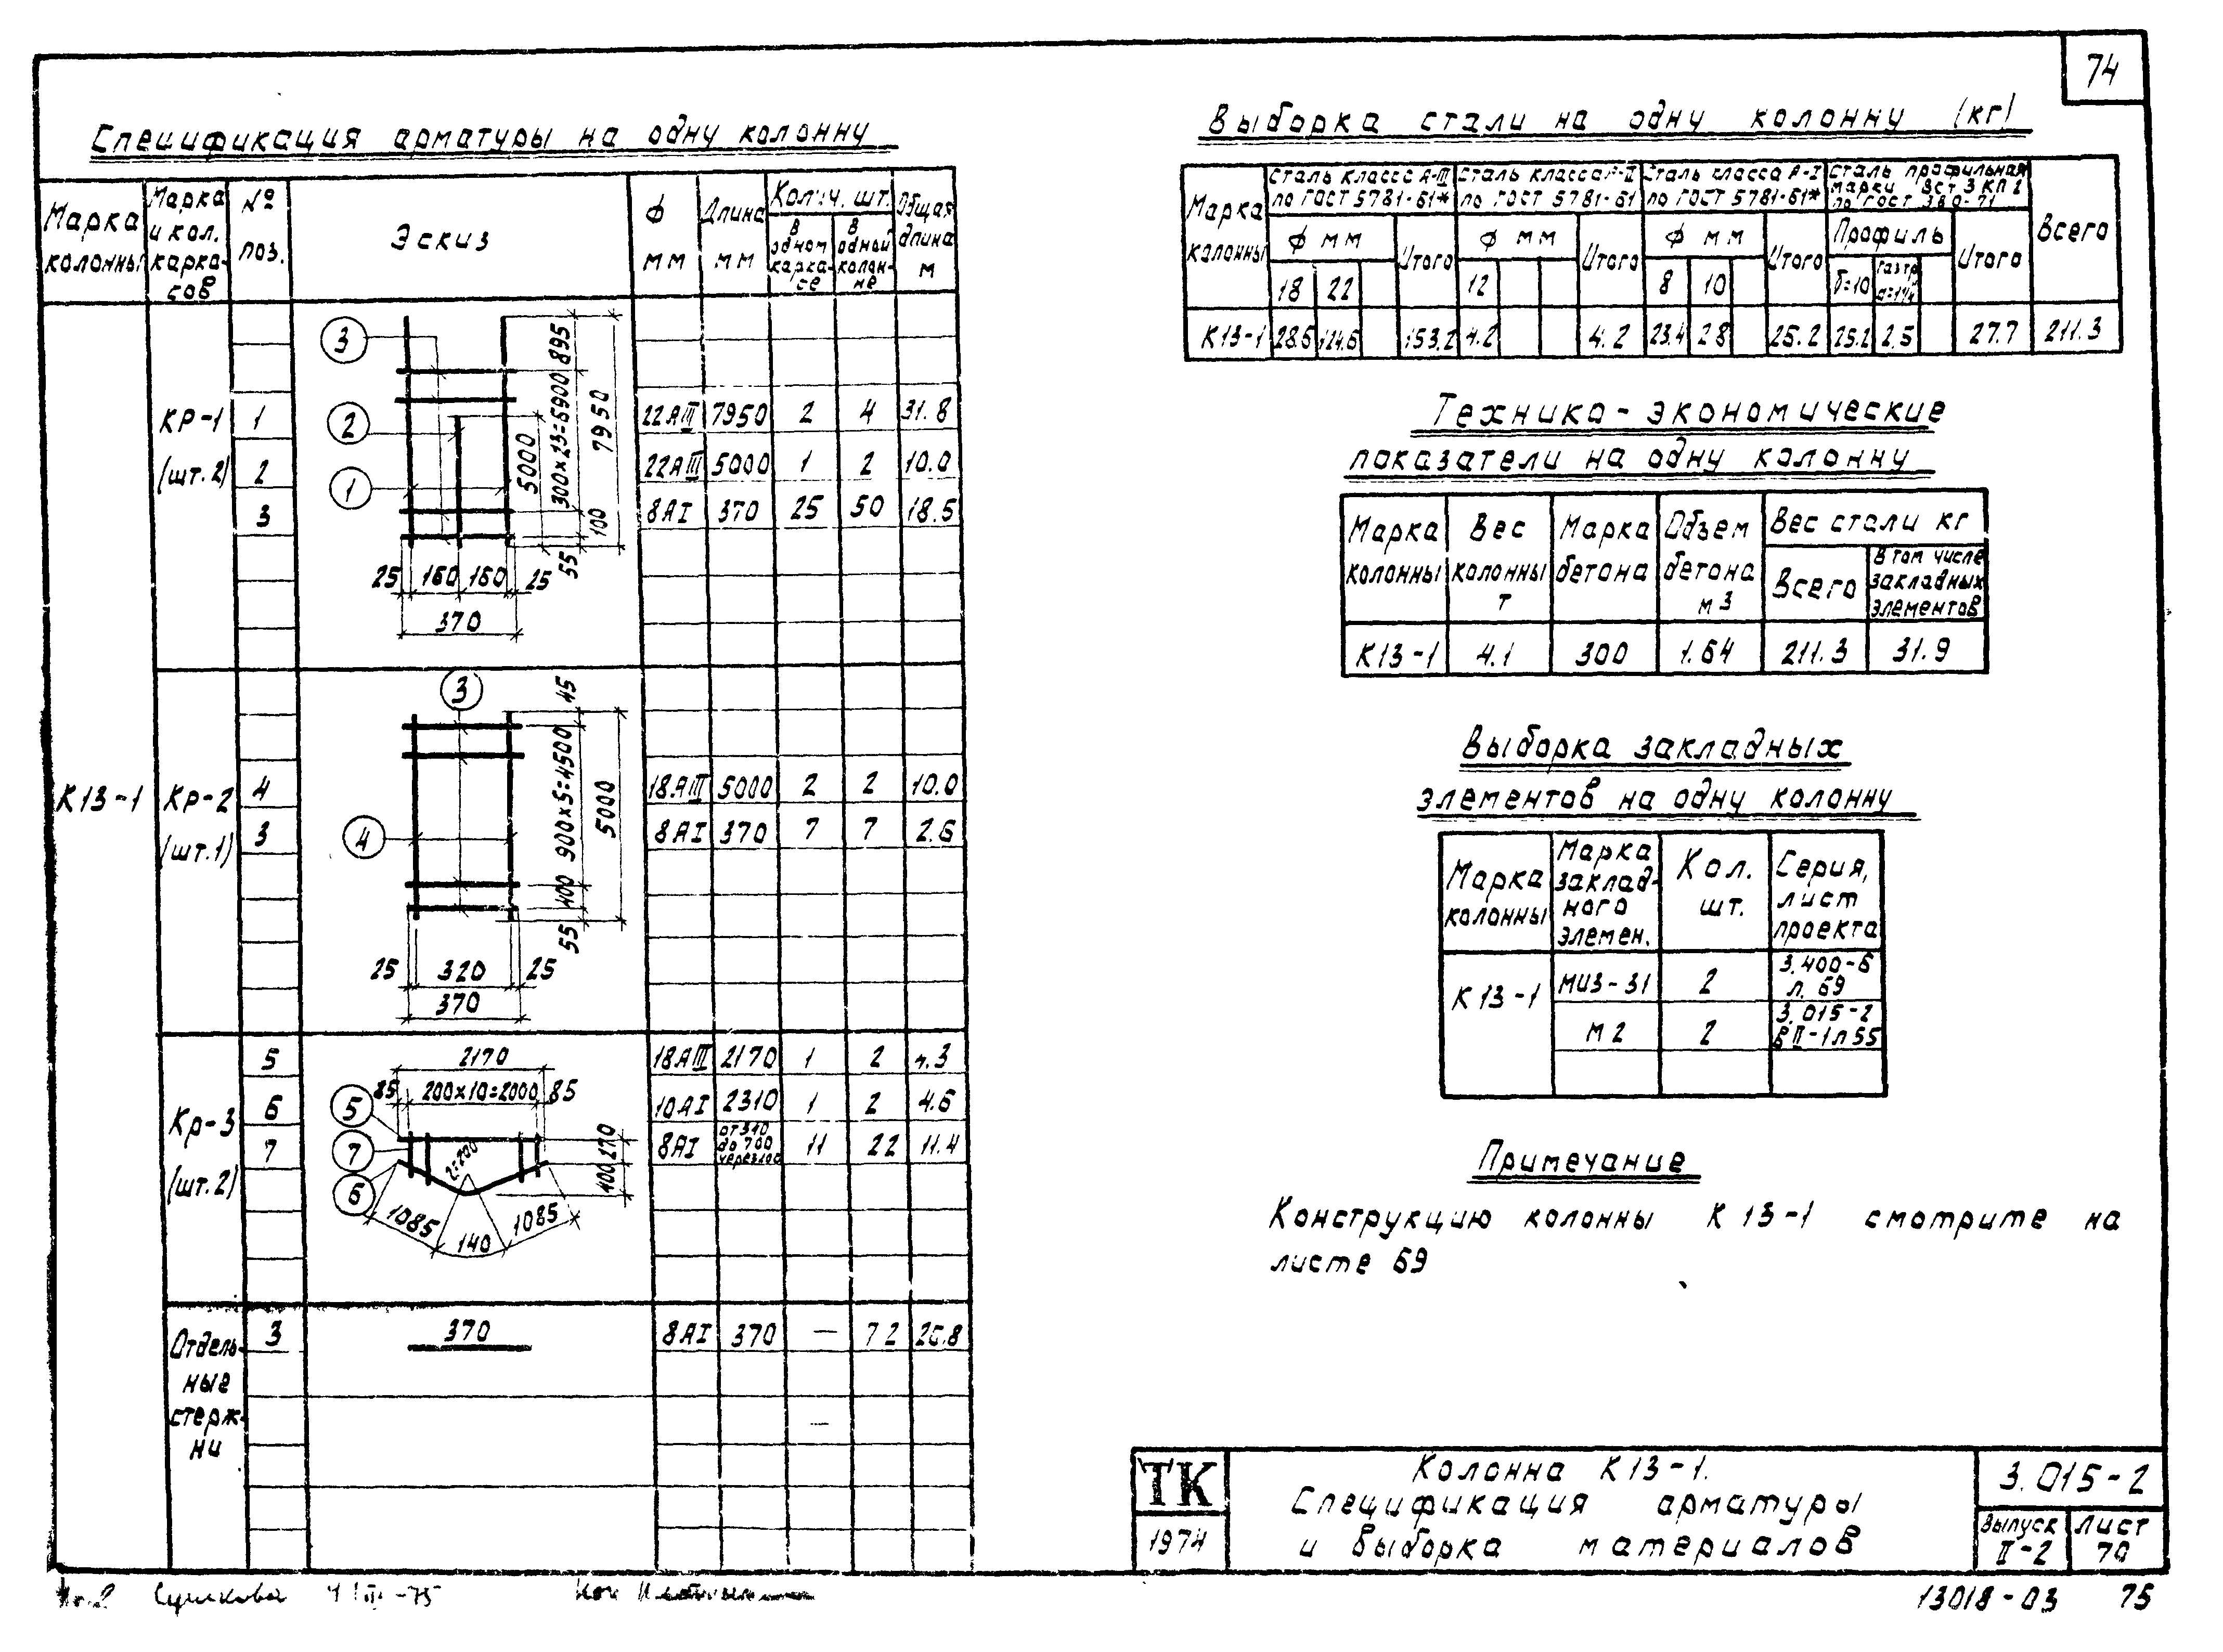 74
Спецификация арматуры на одну колонну
Марка колонны
Марка и кол. карка-сов
№ поз.
Эскиз
ф мм
Длина мм
Колич. шт.
В одном карка-се
В одной колон-не
Общая длина м
К13-1
КР-1 (шт.2)
1 22АIII 7950 2 4 31.8
2 22АIII 5000 1 2 10.0
3 8АI 370 25 50 18.5
3
2
1
895
300х23=6900
7950
5000
100
55
25 160 160 25
370
Кр-2 (шт.1)
4 18АIII 5000 2 2 10.0
3 8АI 370 7 7 2.6
3
4
45
900х5=4500
5000
400
55
25 320 25
370
Кр-3 (шт.2)
5 18АIII 2170 1 2 4.3
6 10АI 2310 1 2 4.6
7 8АI от 310 до 700 через 100 11 22 11.4
2170
85 200х10=2000 85
5
7
6
170
400
1085 140 1085
Отдель-ные стерж-ни
3 370 8АI 370 — 72 26.8
—
Выборка стали на одну колонну (кг)
Марка колонны
Сталь класса А-III по ГОСТ 5781-61*
Сталь класса А-II по ГОСТ 5781-61
Сталь класса А-I по ГОСТ 5781-61*
Сталь профильная марки Вст 3 кп 2 по ГОСТ 380-71
Всего
ф мм Итого ф мм Итого ф мм Итого Профиль Итого
18 22 12 8 10 δ=10
К13-1 28.6 124.6 153.2 4.2 4.2 23.4 2.8 26.2 25.2 2.5 27.7 211.3
Технико-экономические
показатели на одну колонну
Марка колонны
Вес колонны т
Марка бетона
Объем бетона м3
Вес стали кг
Всего
В том числе закладных элементов
К13-1 4.1 300 1.64 211.3 31.9
Выборка закладных
элементов на одну колонну
Марка колонны
Марка заклад-ного элемен.
Кол. шт.
Серия, лист проекта
К13-1
МИЗ-31 2 3.400-6 л. 69
М2 2 3.015-2 в II-1 л 55
Примечание
Конструкцию колонны К 13-1 смотрите на
листе 69
ТК
1974
Колонна К13-1.
Спецификация арматуры
и выборка материалов
3.015-2
Выпуск II-2
Лист 70
13018-03 75